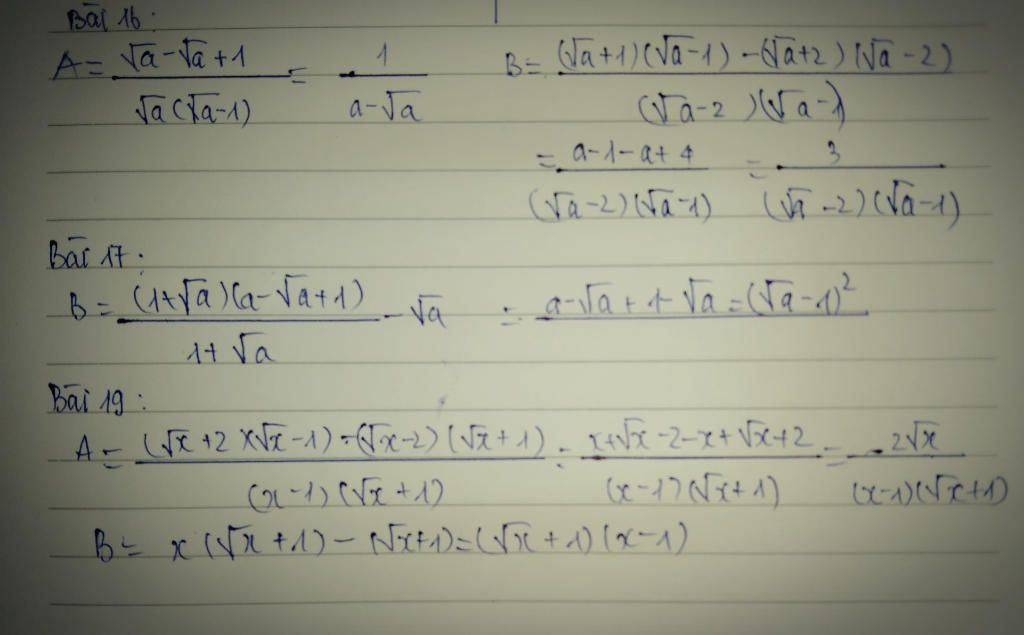 Bài 16:
A = (√a - √a + 1)/(√a(√a-1)) = 1/(a-√a)
B = ((√a+1)(√a-1) - (√a+2)(√a-2))/((√a-2)(√a-1))
= (a-1-a+4)/((√a-2)(√a-1)) = 3/((√a-2)(√a-1))
Bài 17:
B = ((1+√a)(a-√a+1))/(1+√a) - √a = a-√a+1-√a = (√a-1)²
Bài 19:
A = ((√x+2)(√x-1) - (√x-2)(√x+1))/((x-1)(√x+1)) = (x+√x-2-x+√x+2)/((x-1)(√x+1)) = 2√x/((x-1)(√x+1))
B = x(√x+1) - (√x+1) = (√x+1)(x-1)